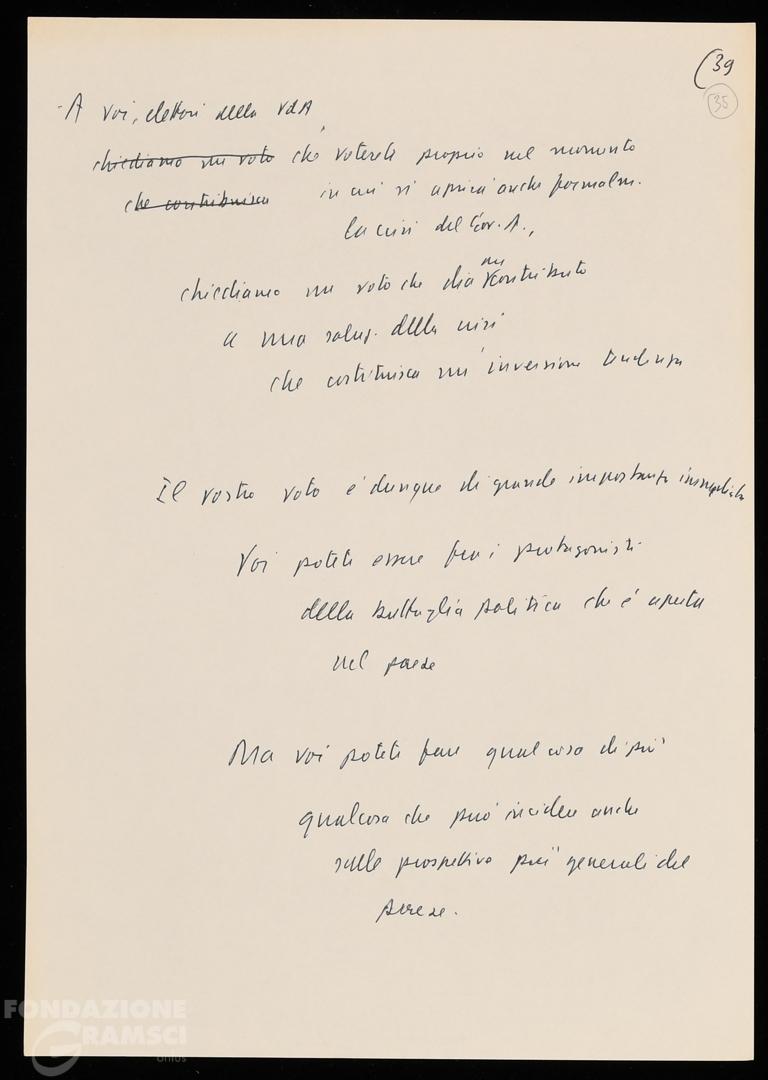 (39
35
- A voi, elettori della VdA,
chiediamo un voto che voterete proprio nel momento
che contribuisca in cui si aprirà anche formalm.
la crisi del Gov. A.,
chiediamo un voto che dia un contributo
a una soluz. della crisi
che costituisca un'inversione tendenza
Il vostro voto è dunque di grande importanza
Voi potete essere fra i protagonisti
della battaglia politica che è aperta
nel paese
Ma voi potete fare qualcosa di più
qualcosa che può incidere anche
sulle prospettive più generali del
paese.
FONDAZIONE
GRAMSCI
onlus